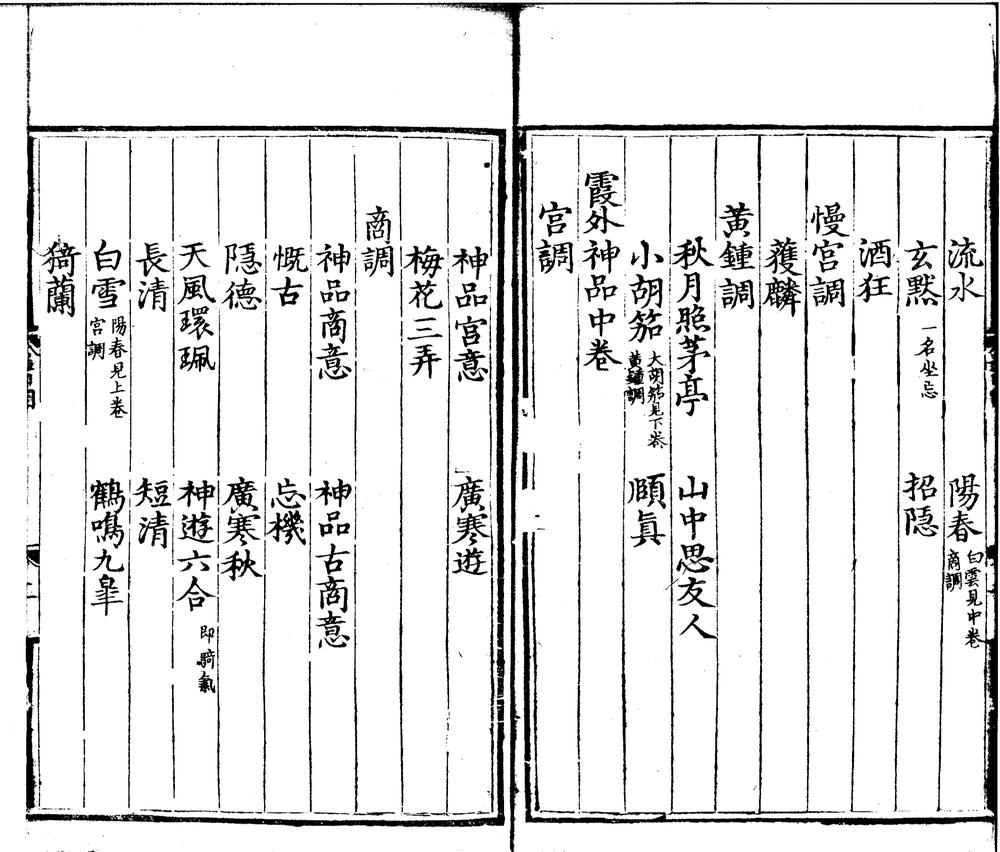 流水　陽春 白雲見中卷商調
玄默 一名坐忘　招隱
酒狂
慢宮調
蒦麟
黃鍾調
秋月照茅亭　山中思友人
小胡笳 大胡笳見下卷黃鍾調　頤眞
霞外神品中卷
宮調
神品宮意　廣寒遊
梅花三弄
商調
神品商意　神品古商意
慨古　忘機
隱德　廣寒秋
天風環珮　神遊六合 即騎氣
長清　短清
白雪 陽春見上卷宮調　鶴鳴九皐
猗蘭